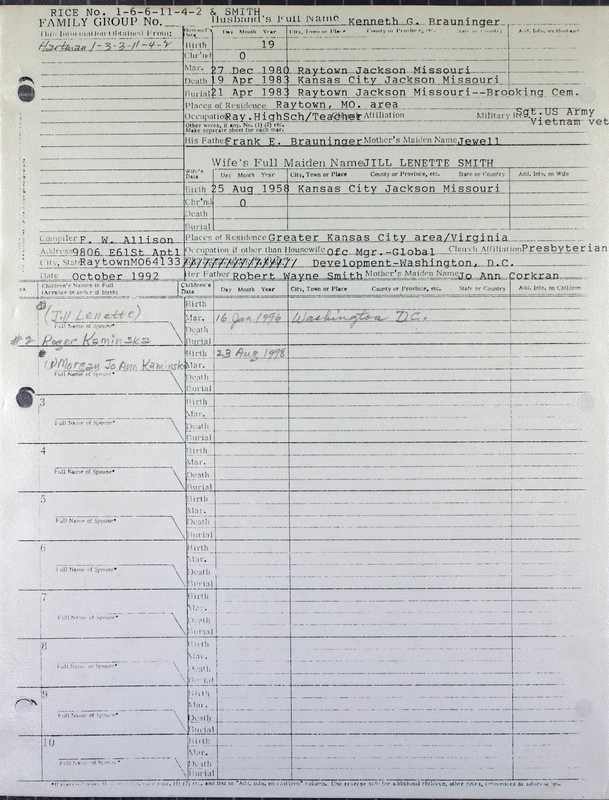 RICE No. 1-6-6-11-4-2 & SMITH
FAMILY GROUP No. Husband's Full Name Kenneth G. Brauninger
This Information Obtained From:
Hartman 1-3-3-11-4-2
Husband's Data Day Month Year City, Town or Place County or Province, etc. State or Country Add. Info. on Husband
Birth 19
Chr'nd 0
Mar. 27 Dec 1980 Raytown Jackson Missouri
Death 19 Apr 1983 Kansas City Jackson Missouri
Burial 21 Apr 1983 Raytown Missouri--Brooking Cem.
Places of Residence Raytown, MO. area
Occupation Ray.HighSch/Teacher Church Affiliation Military Rec. Sgt.US Army
Vietnam vet
Other wives, if any. No. (1) (2) etc.
Make separate sheet for each mar.
His Father Frank E. Brauninger Mother's Maiden Name Jewell
Wife's Full Maiden Name JILL LENETTE SMITH
Wife's Data Day Month Year City, Town or Place County or Province, etc. State or Country Add. Info. on Wife
Birth 25 Aug 1958 Kansas City Jackson Missouri
Chr'nd 0
Death
Burial
Compiler F. W. Allison Places of Residence Greater Kansas City area/Virginia
Address 9806 E61St Apt1 Occupation if other than Housewife Ofc Mgr.-Global Church Affiliation Presbyterian
City, State Raytown MO64133 Development-Washington, D.C.
Date October 1992 Her Father Robert Wayne Smith Mother's Maiden Name Jo Ann Corkran
Children's Names in Full
(Arrange in order of birth) Children's Data Day Month Year City, Town or Place County or Province, etc. State or Country Add. Info. on Children
Birth
(Jill Lenette) Mar. 16 Jan 1996 Washington D.C.
Full Name of Spouse* Death
#2 Roger Kaminska Burial
Birth 23 Aug 1998
(1) Morgan Jo Ann Kaminska Mar.
Full Name of Spouse* Death
Burial
3 Birth
Mar.
Full Name of Spouse* Death
Burial
4 Birth
Mar.
Full Name of Spouse* Death
Burial
5 Birth
Mar.
Full Name of Spouse* Death
Burial
6 Birth
Mar.
Full Name of Spouse* Death
Burial
7 Birth
Mar.
Full Name of Spouse* Death
Burial
8 Birth
Mar.
Full Name of Spouse* Death
Burial
9 Birth
Mar.
Full Name of Spouse* Death
Burial
10 Birth
Mar.
Full Name of Spouse* Death
Burial